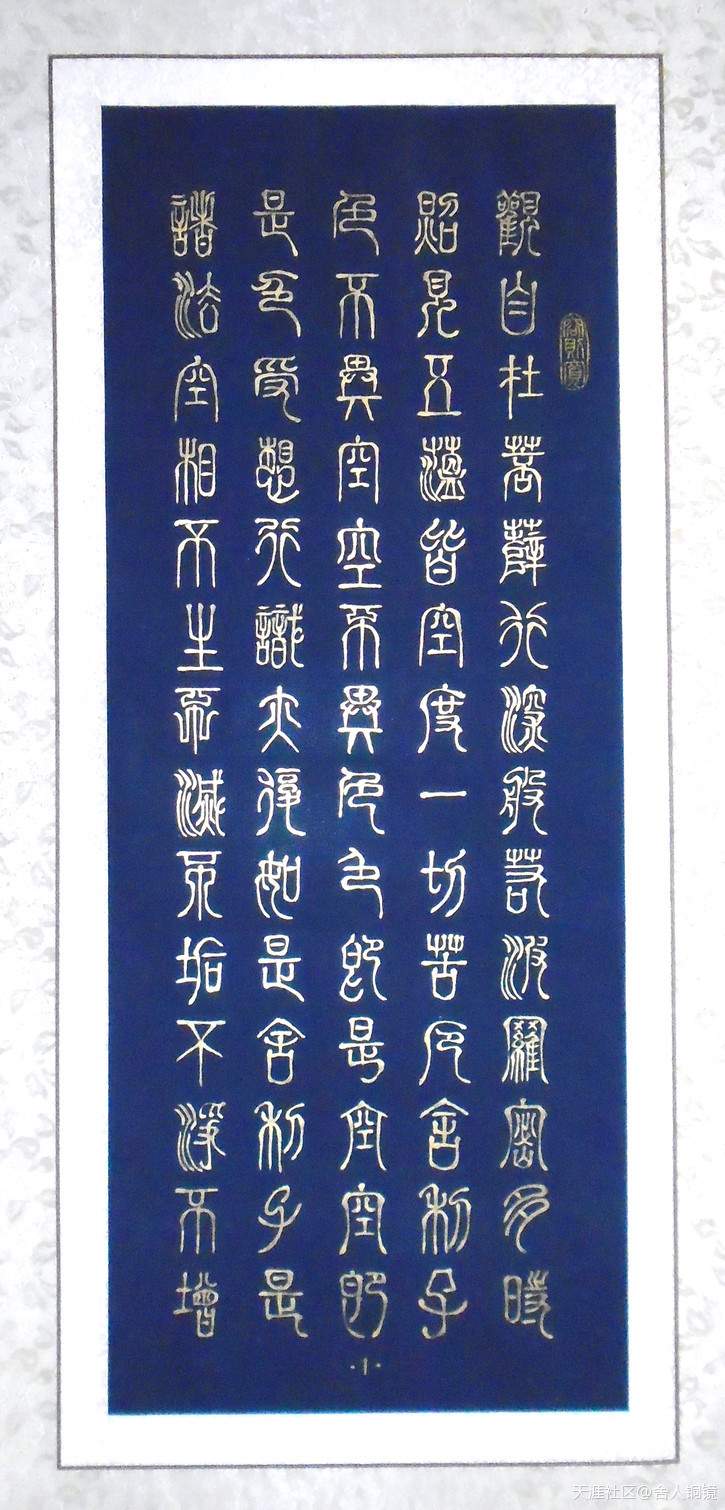 觀自在菩薩行深般若波羅密多時
照見五蘊皆空度一切苦厄舍利子
色不異空空不異色色即是空空即
是色受想行識亦復如是舍利子是
諸法空相不生不滅不垢不淨不增
·1·
天涯社区@舍人铜镜